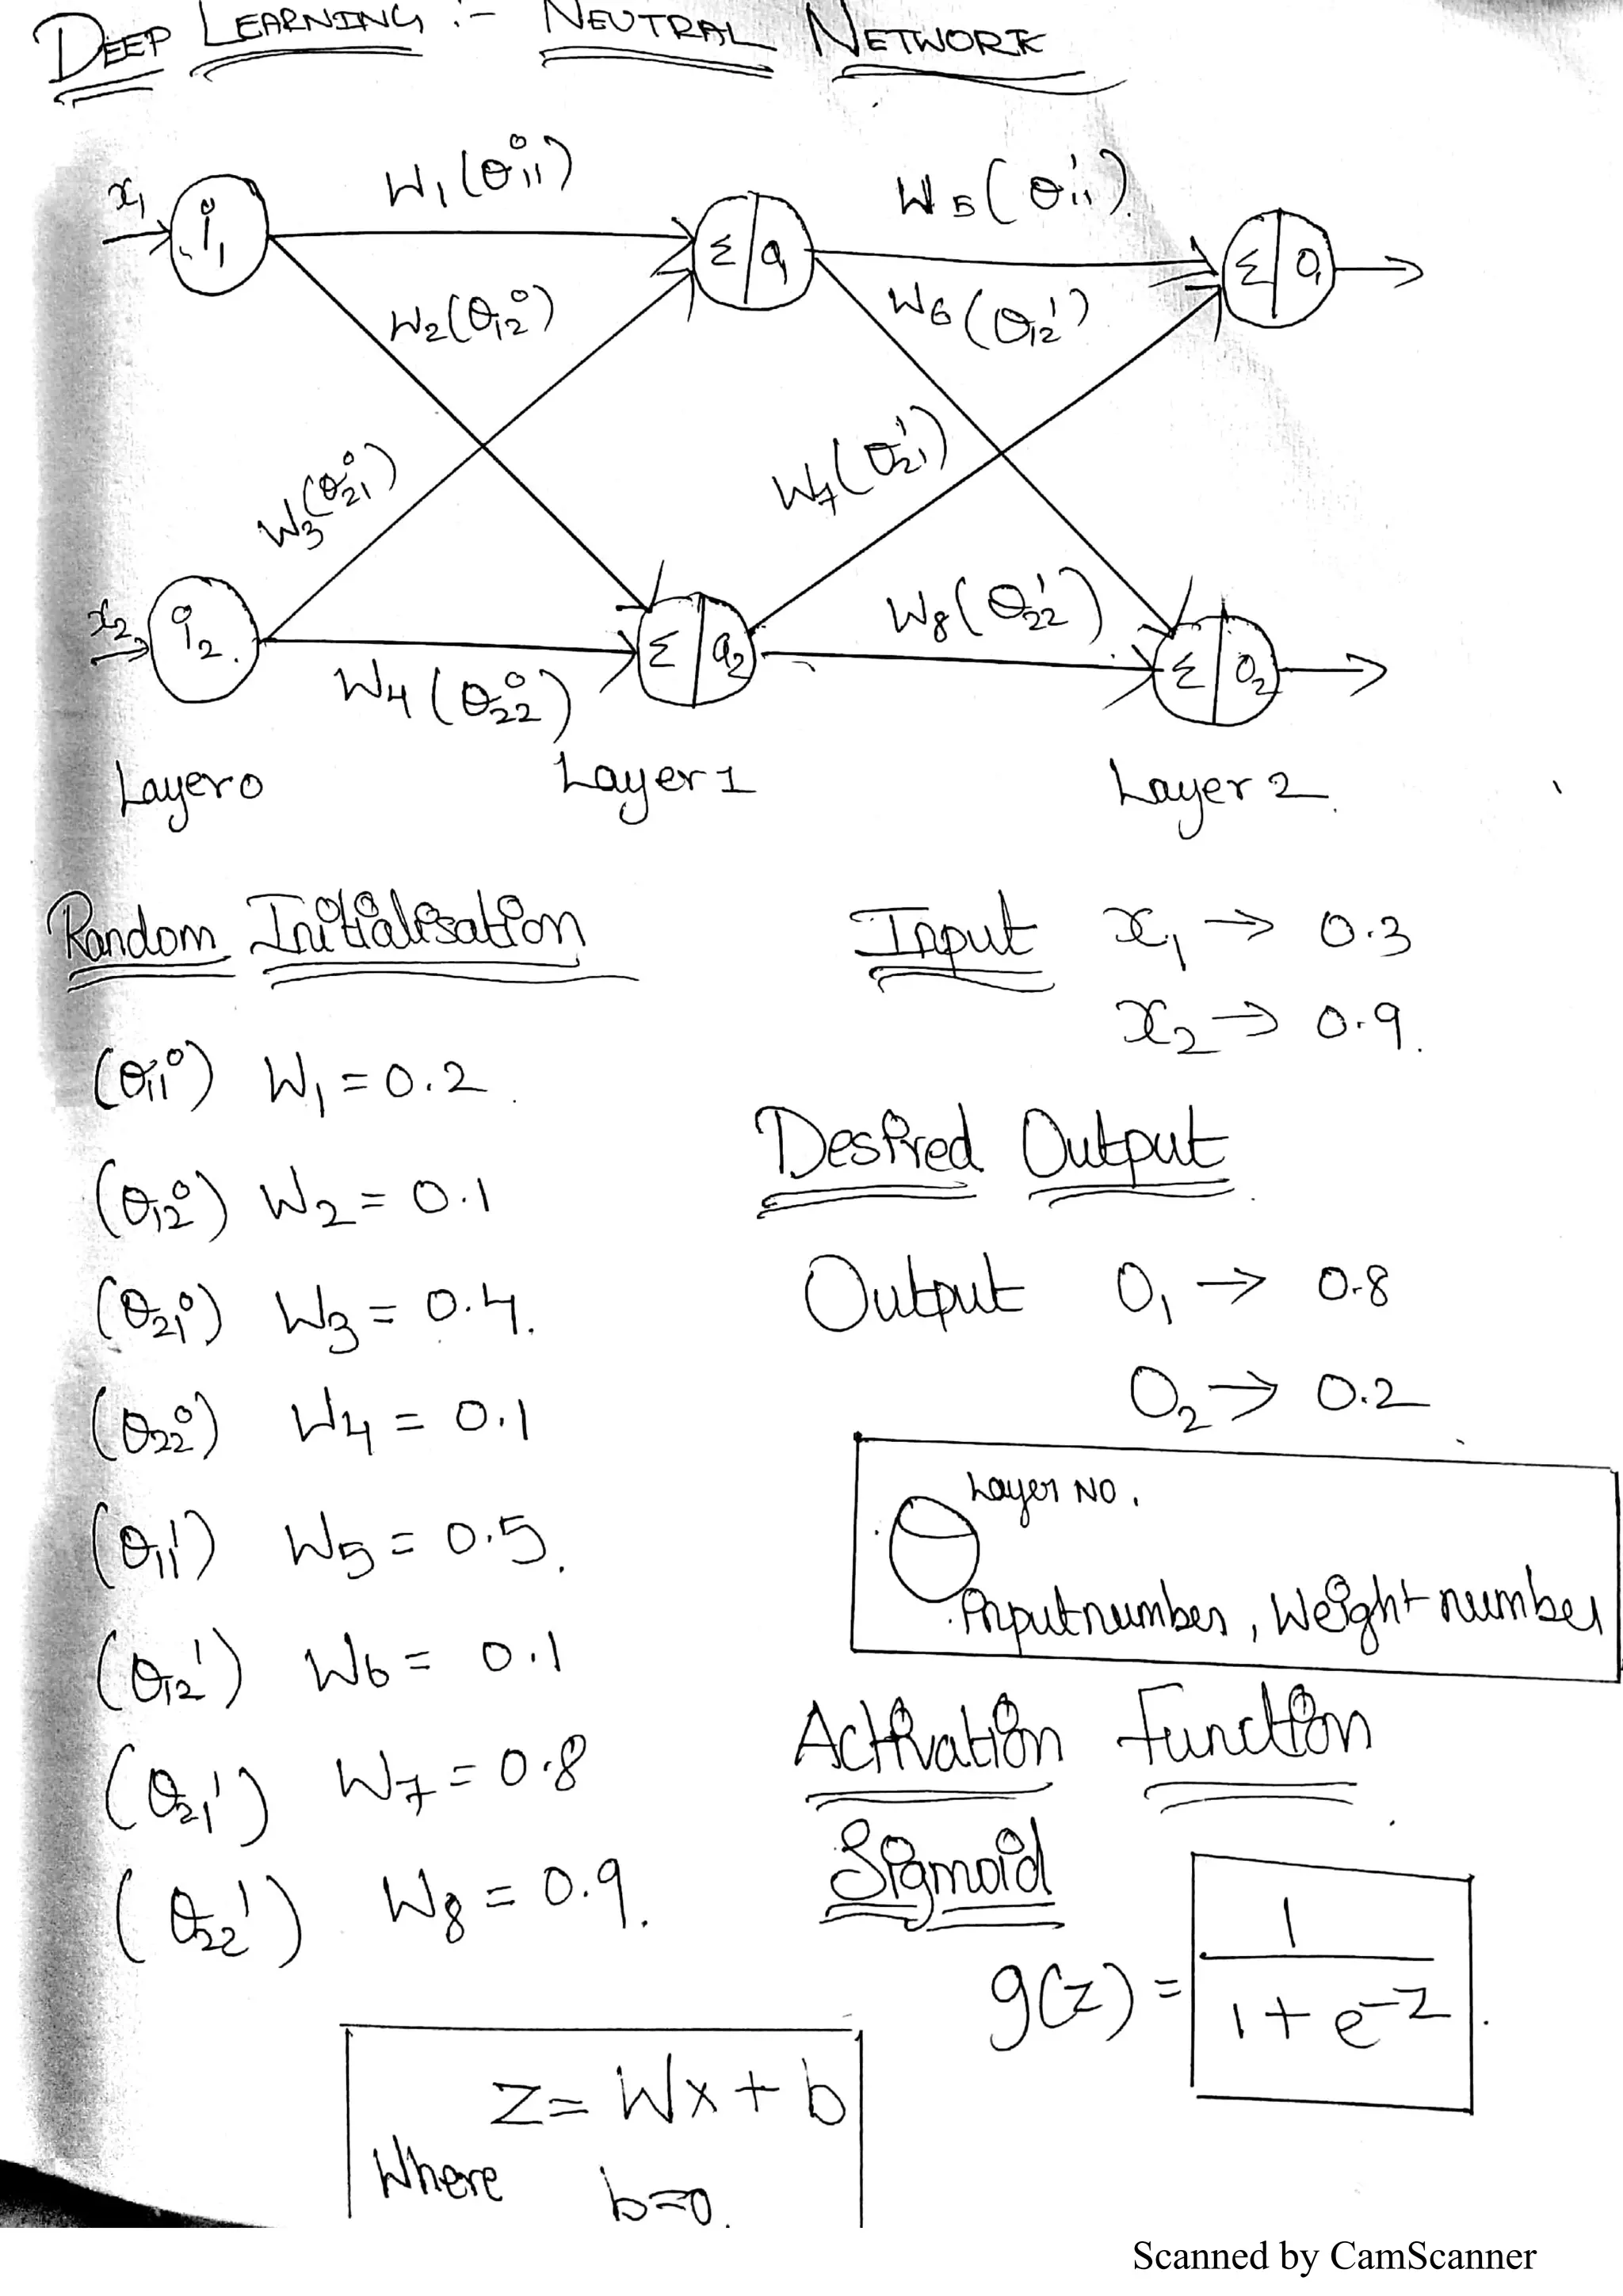 DEEP LEARNING :- NEUTRAL NETWORK
x₁ i₁ W₁(θ⁰₁₁) Σ a₁ W₅(θ¹₁₁) Σ O₁
W₂(θ₁₂⁰) W₆(θ₁₂¹)
W₃(θ⁰₂₁) W₇(θ¹₂₁)
x₂ i₂ W₄(θ⁰₂₂) Σ a₂ W₈(θ¹₂₂) Σ O₂
Layer 0 Layer 1 Layer 2
Random Initialisation
(θ₁₁⁰) W₁ = 0.2
(θ₁₂⁰) W₂ = 0.1
(θ₂₁⁰) W₃ = 0.4.
(θ₂₂⁰) W₄ = 0.1
(θ₁₁¹) W₅ = 0.5.
(θ₁₂¹) W₆ = 0.1
(θ₂₁¹) W₇ = 0.8
(θ₂₂¹) W₈ = 0.9.
Z = Wx + b
Where b=0.
Input x₁ → 0.3
x₂ → 0.9.
Desired Output
Output O₁ → 0.8
O₂ → 0.2
Layer NO.
θ
inputnumber, Weight number
Activation Function
Sigmoid
g(z) = 1
1 + e⁻ᶻ
Scanned by CamScanner